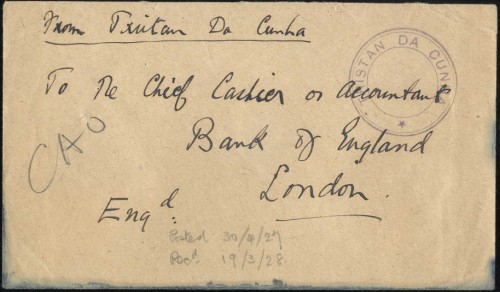 From Tristan Da Cunha
TRISTAN DA CUNHA
To The Chief Cashier or Accountant
Bank of England
CAO
London.
Engd.
Posted 30/4/27
Recd. 19/3/28